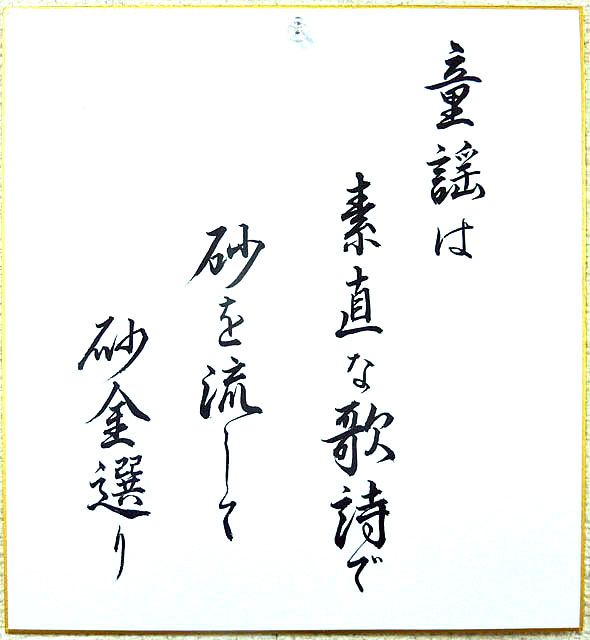 童謡は
素直な歌詩で
砂を流して
砂金選り